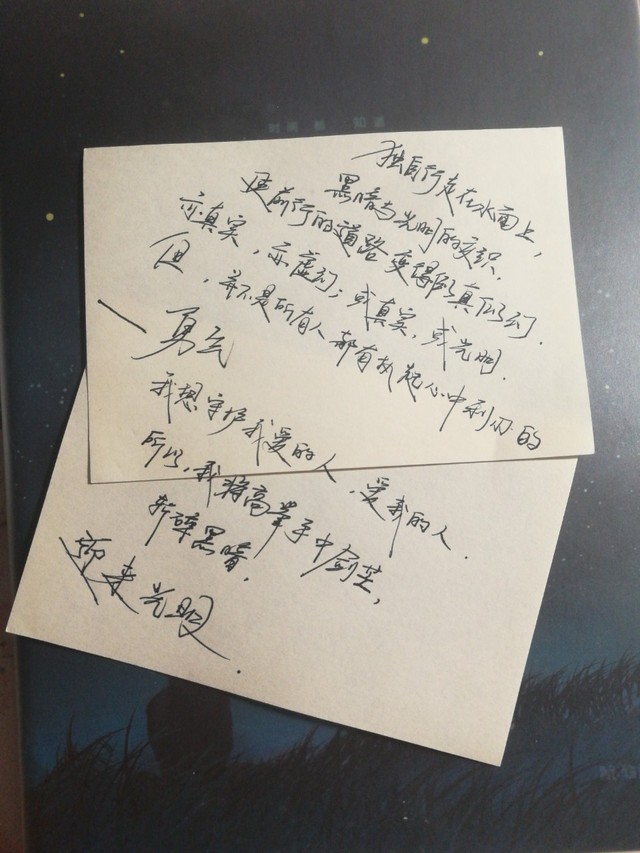 独自行走在水面上，
黑暗与光明的交织，
使前行的道路变得似真似幻.
亦真实，亦虚幻；或真实，或光明.
但，并不是所有人都有执起心中利刃的
一勇气
我想守护我爱的人，爱我的人.
所以，我将高举手中剑芒，
斩碎黑暗，
迎来光明.